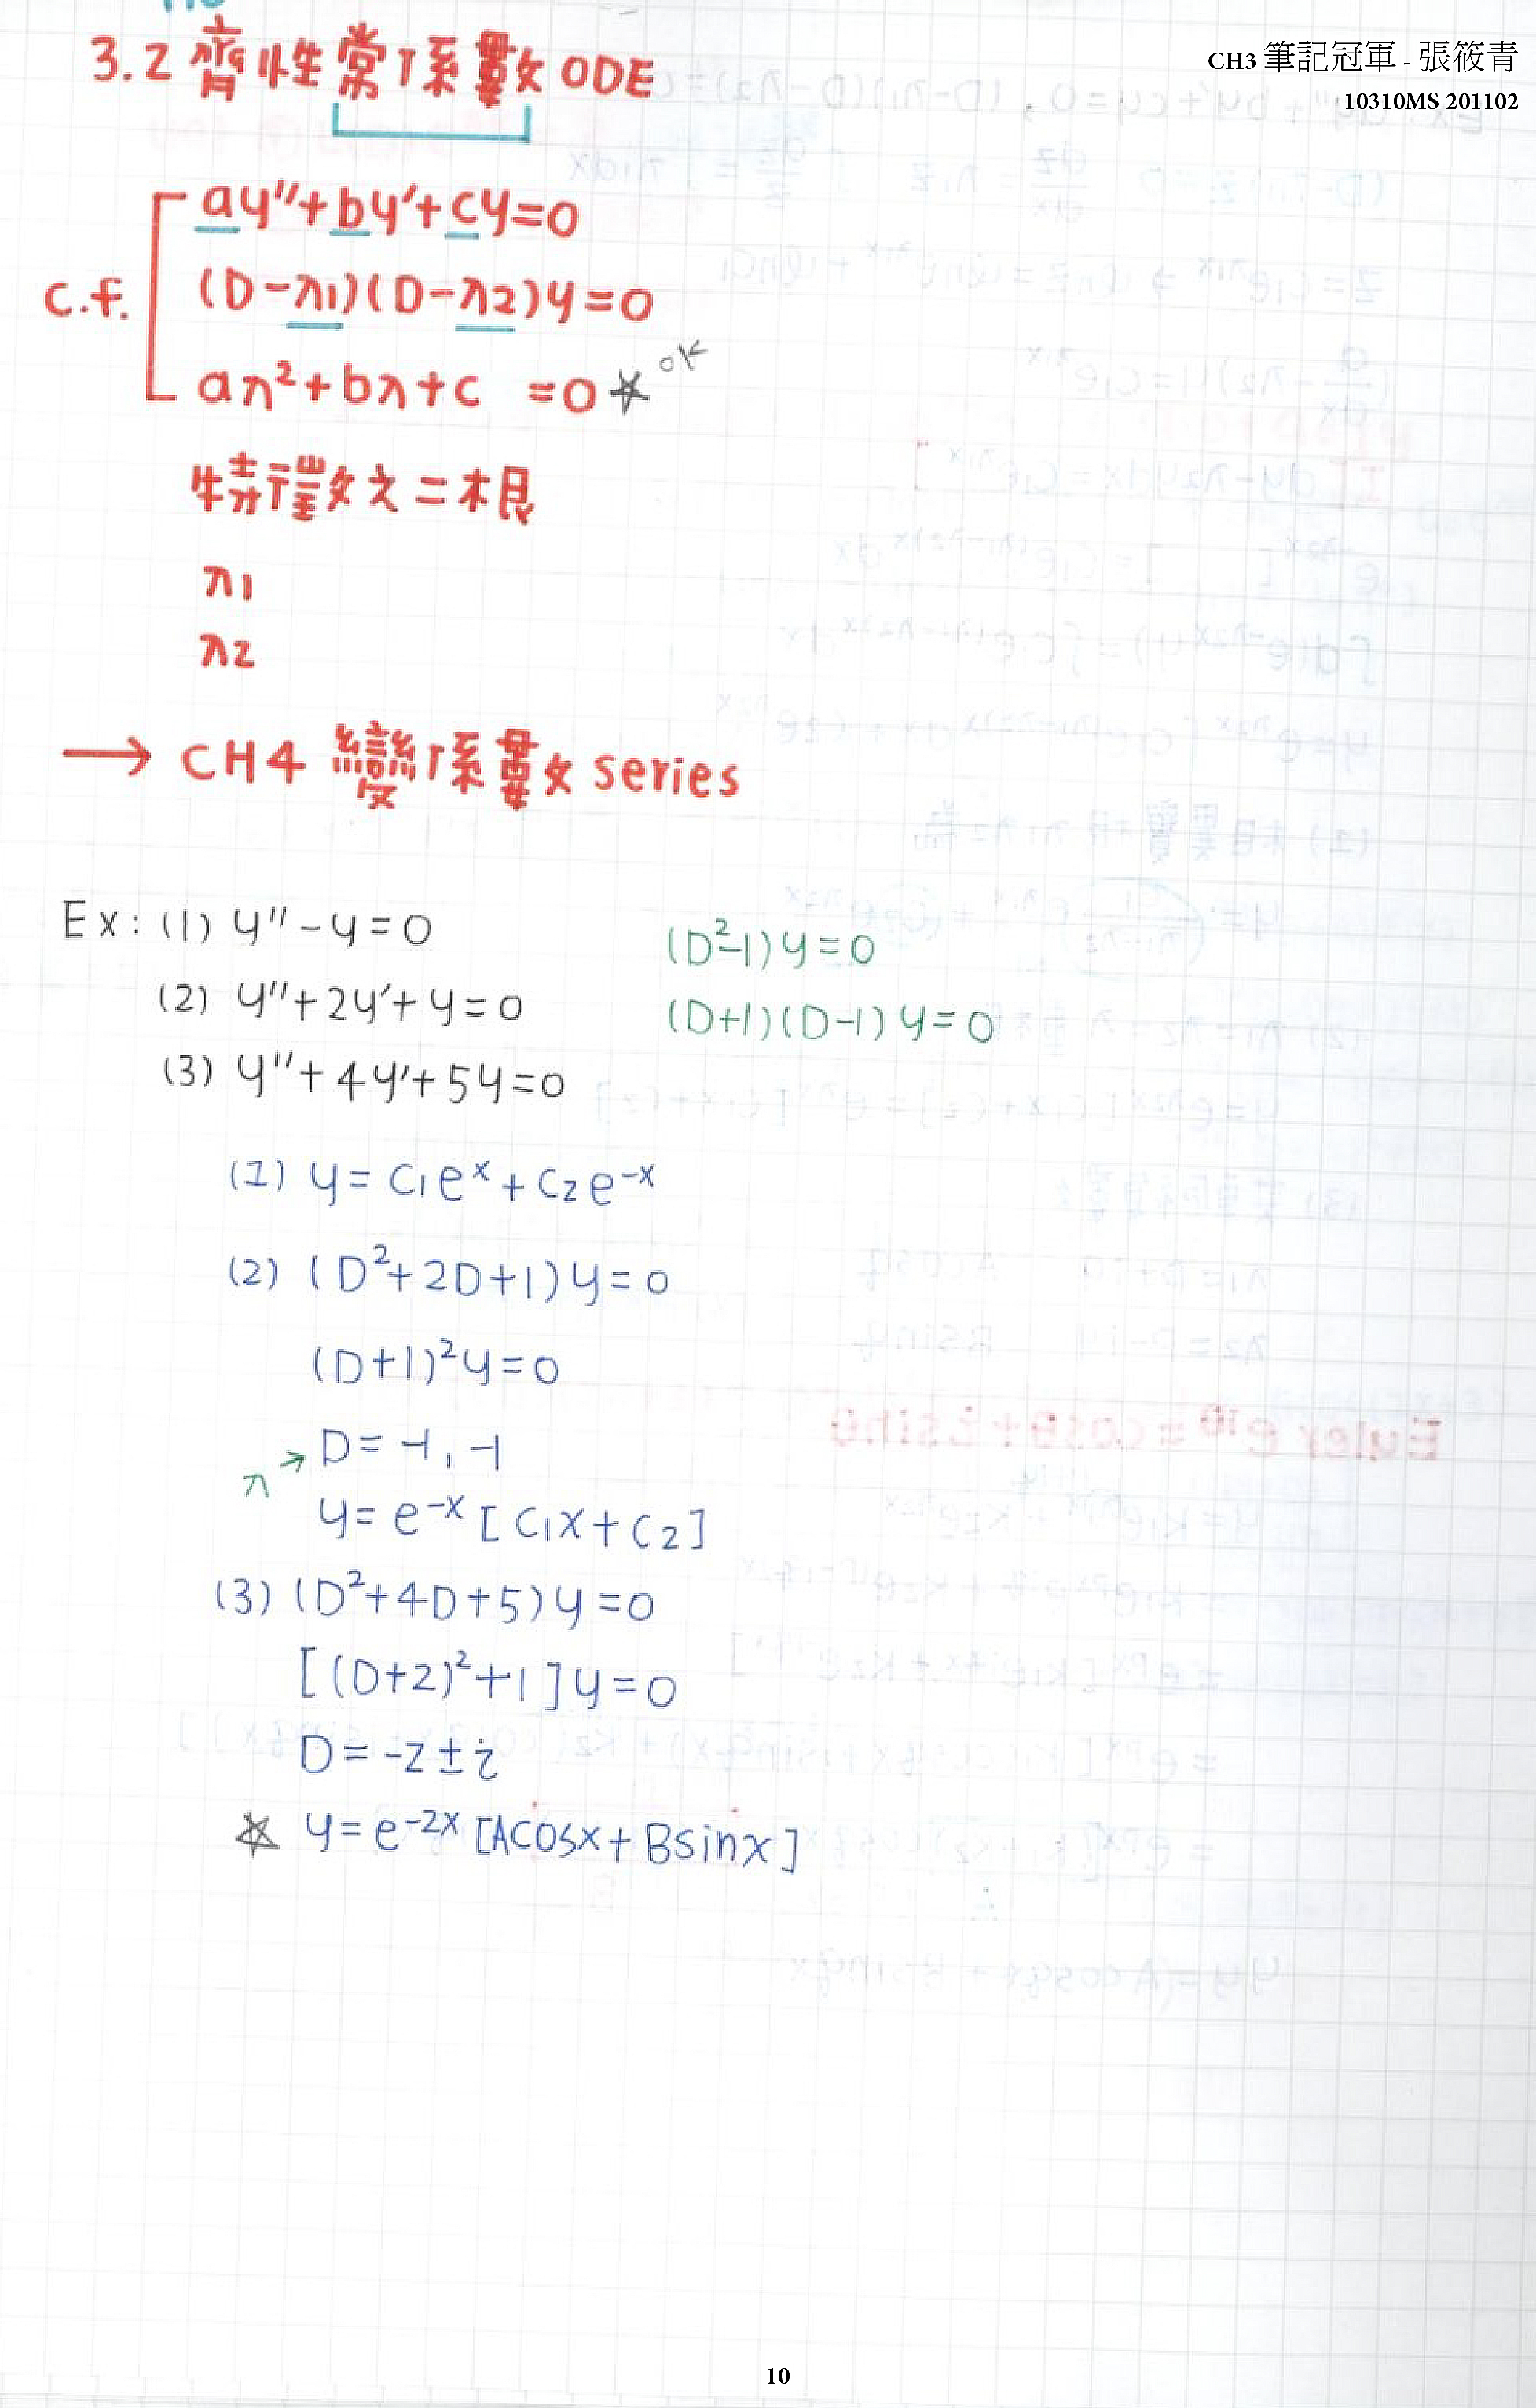 CH3 筆記冠軍 - 張筱青
10310MS 201102
3.2 齊性常係數ODE
c.f.
ay''+by'+cy=0
(D-λ1)(D-λ2)y=0
aλ²+bλ+c =0 ☆ OK
λ1
λ2
→ CH4 變係數 series
Ex: (1) y''-y=0
(D²-1)y=0
(2) y''+2y'+y=0
(D+1)(D-1)y=0
(3) y''+4y'+5y=0
(1) y=c₁eˣ+c₂e⁻ˣ
(2) (D²+2D+1)y=0
(D+1)²y=0
λ → D=-1,-1
y=e⁻ˣ[c₁x+c₂]
(3) (D²+4D+5)y=0
[(D+2)²+1]y=0
D=-2±i
☆ y=e⁻²ˣ[Acosx+Bsinx]
10